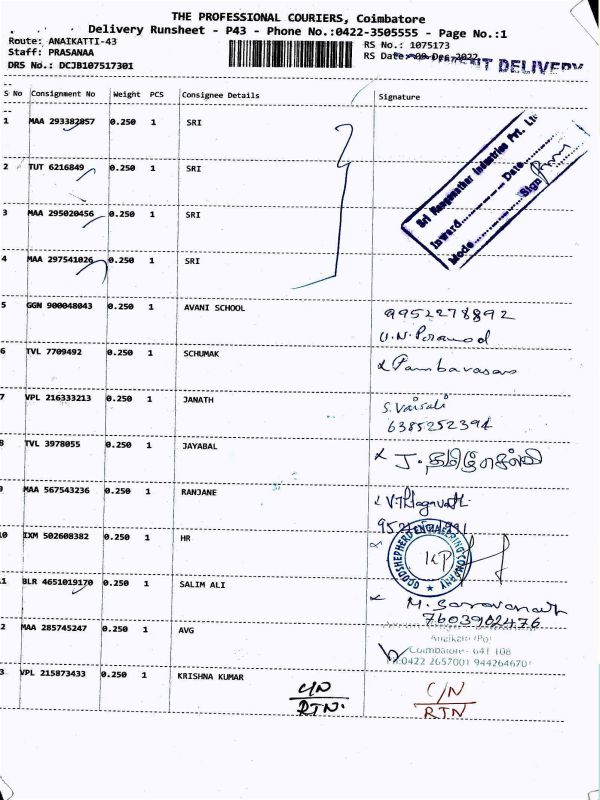 THE PROFESSIONAL COURIERS, Coimbatore
Delivery Runsheet - P43 - Phone No.:0422-3505555 - Page No.:1
Route: ANAIKATTI-43
Staff: PRASANAA
DRS No.: DCJB107517301
RS No.: 1075173
RS Date: 09 Dec 2022
DELIVERY
S No Consignment No Weight PCS Consignee Details Signature
1 MAA 293382857 0.250 1 SRI
2 TUT 6216849 0.250 1 SRI
3 MAA 295020456 0.250 1 SRI
4 MAA 297541026 0.250 1 SRI
Sri Ranganathar Industries Pvt. Ltd
Inward Date
Mode Sign
5 GGN 900048043 0.250 1 AVANI SCHOOL 9952278892
6 TVL 7709492 0.250 1 SCHUMAK
7 VPL 216333213 0.250 1 JANATH S. Vaisali
6385252394
8 TVL 3978055 0.250 1 JAYABAL J. தமிழ்செல்வி
9 MAA 567543236 0.250 1 RANJANE
10 IXM 502608382 0.250 1 HR
GOODSHEPHERD ENGINEERING COMPANY
11 BLR 4651019170 0.250 1 SALIM ALI M. Saravanan
7603902476
12 MAA 285745247 0.250 1 AVG
Anaikatti (Po)
Coimbatore - 641 108
Ph:0422 2657001 9442646701
13 VPL 215873433 0.250 1 KRISHNA KUMAR C/N C/N
RTN. RTN